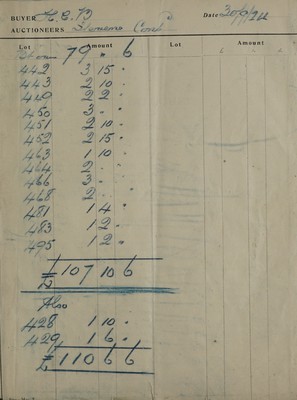 BUYER H.C.B Date 30/9/24
AUCTIONEERS Stevens Cont
Lot Amount Lot £ s d
79 " 6
442 3 15 "
443 2 10 "
449 2 2 "
450 3 " "
451 2 10 "
452 2 15 "
463 1 10 "
464 2 " "
466 3 " "
468 2 " "
481 1 4 "
483 1 2 "
495 1 2 "
£ 107 10 6
Also
428 1 10 "
429 1 6 "
£ 110 6 6